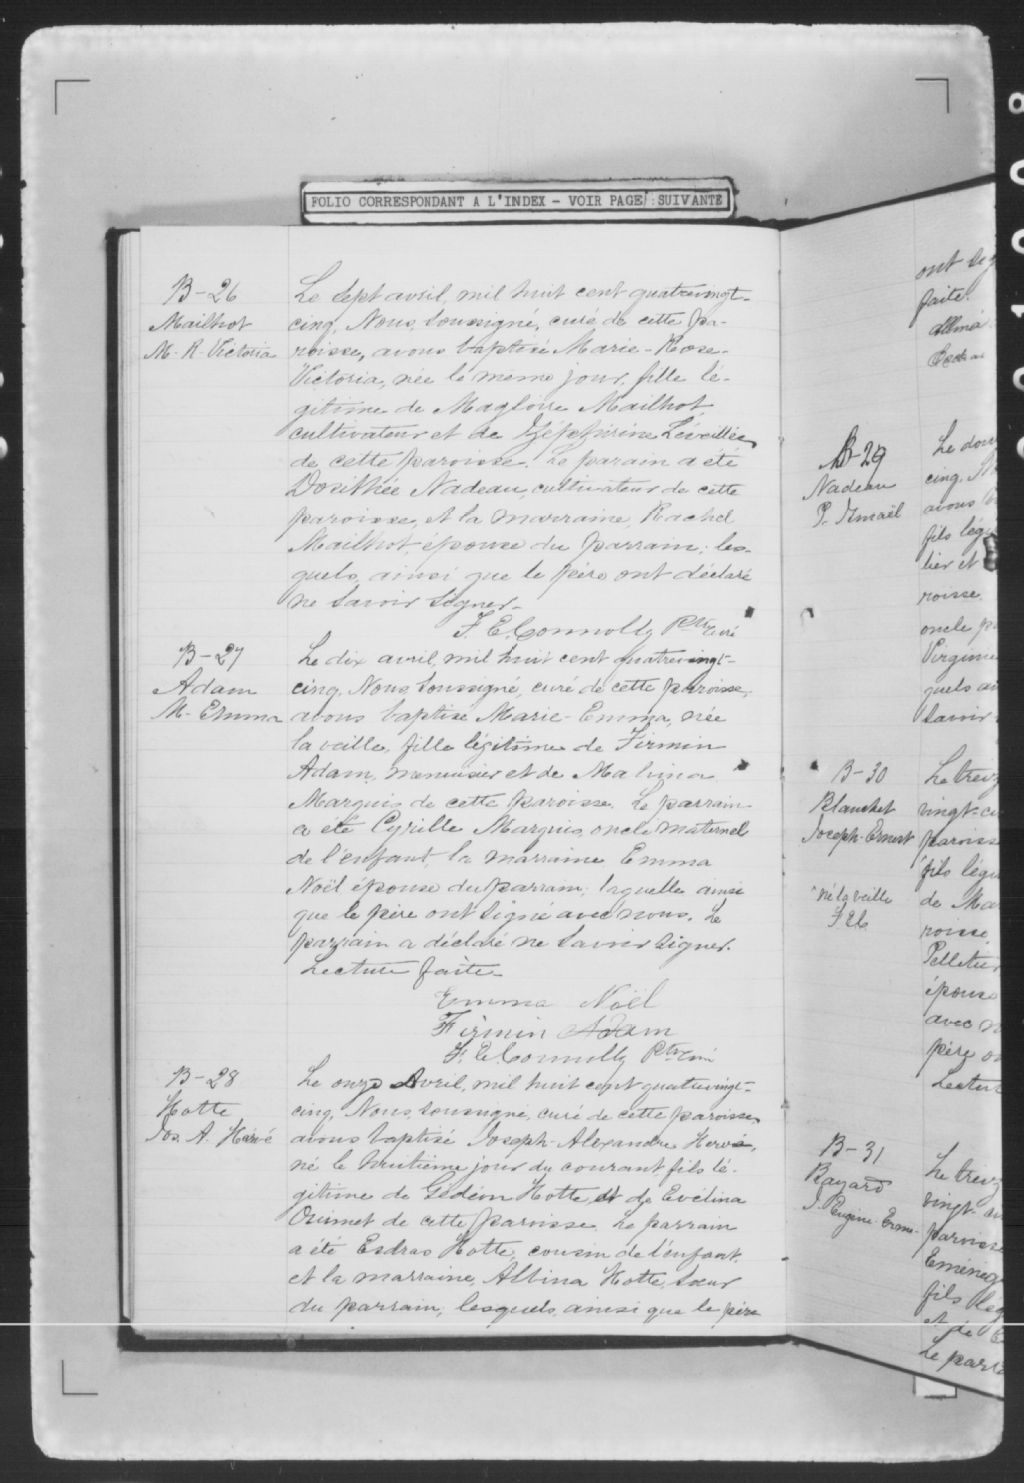 FOLIO CORRESPONDANT A L'INDEX - VOIR PAGE : SUIVANTE
B-26
Mailhot
M. R. Victoria
Le sept avril, mil huit cent quatrevingt-
cinq, Nous soussigné, curé de cette pa-
roisse, avons baptisé Marie-Rose-
Victoria, née le même jour, fille lé-
gitime de Magloire Mailhot,
cultivateur et de Zéphirine Léveillée
de cette paroisse. Le parain a été
Dosithée Nadeau, cultivateur de cette
paroisse, et la marraine, Rachel
Mailhot, épouse du parrain; les-
quels, ainsi que le père ont déclaré
ne savoir signer.
F. E. Connolly Ptre Curé
B-27
Adam
M. Emma
Le dix avril, mil huit cent quatrevingt-
cinq, Nous soussigné, curé de cette paroisse,
avons baptisé Marie-Emma, née
la veille, fille légitime de Firmin
Adam, menuisier et de Malvina
Marquis de cette paroisse. Le parrain
a été Cyrille Marquis, oncle maternel
de l'enfant, la marraine Emma
Noël épouse du parrain; laquelle ainsi
que le père ont signé avec nous. Le
parrain a déclaré ne savoir signer.
Lecture faite.
Emma Noël
Firmin Adam
F. E. Connolly Ptre Curé
B-28
Hotte
Jos. A. Hervé
Le onze Avril, mil huit cent quatrevingt-
cinq, Nous soussigné, curé de cette paroisse,
avons baptisé Joseph-Alexandre Hervé,
né le huitième jour du courant fils lé-
gitime de Gédéon Hotte, et de Evélina
Ouimet de cette paroisse. Le parrain
a été Esdras Hotte, cousin de l'enfant,
et la marraine, Albina Hotte, soeur
du parrain; lesquels, ainsi que le père
ont sig
faite.
B-29
Nadeau
P. Ismaël
Le dou
cing,
avons
fils lég
lier et
roisse.
oncle p
Virginie
quels ai
savoir
B-30
Blanchet
Joseph-Ernest
né la veille
F. E. C.
Le treiz
vingt-ci
paroisse
fils légi
de Ma
roisse.
Pelletier
épouse
avec n
père on
Lectur
B-31
Bayard
J. Eugène
Le treiz
vingt-
paroisse
Eméneg
fils lég
et de
Le parr